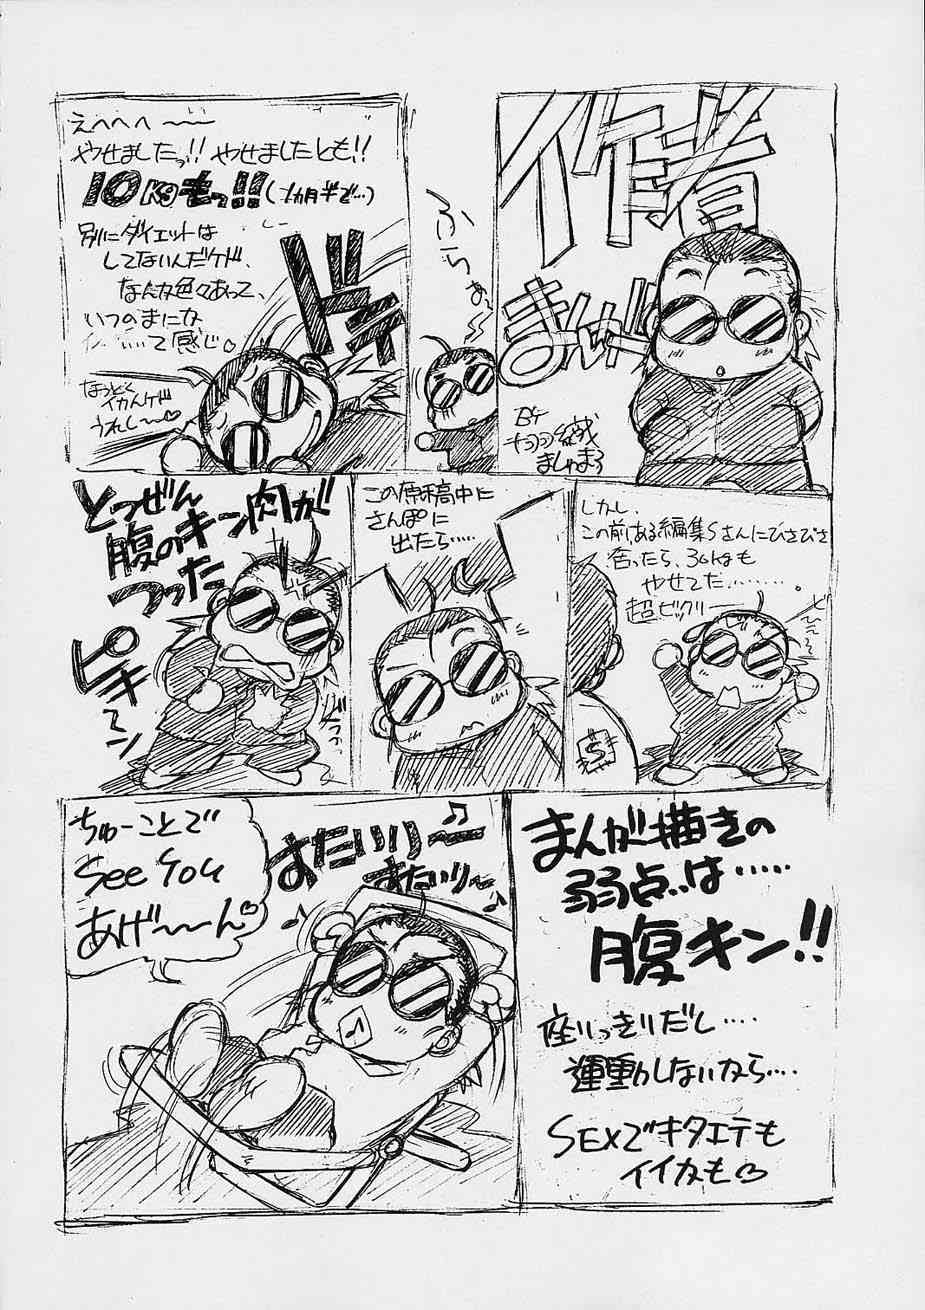 作者
まんが
BY
ふらぁ〜
えへへへ〜〜
やせましたっ!! やせましたとも!!
10Kgもっ!!(1ヵ月半で…)
別にダイエットは
してないんだケド、
なんか色々あって、
いつのまにな
って感じ♡
なっとく
イカんケド
うれし〜〜♡
ドキ
しかし、
この前、ある編集Sさんにひさびさ
会ったら、30kgも
やせてた………。
超ビックリーー
S
この原稿中に
さんぽに
出たら……
とつぜん
腹のキン肉が
つった
ピキ〜ン
まんが描きの
弱点は……
腹キン!!
座りっきりだし…
運動しないなら…
SEXでキタエテも
イイカも♡
おたいり〜♪
おたいり〜♪
ちゅーことで
See You
あげ〜〜ん♡